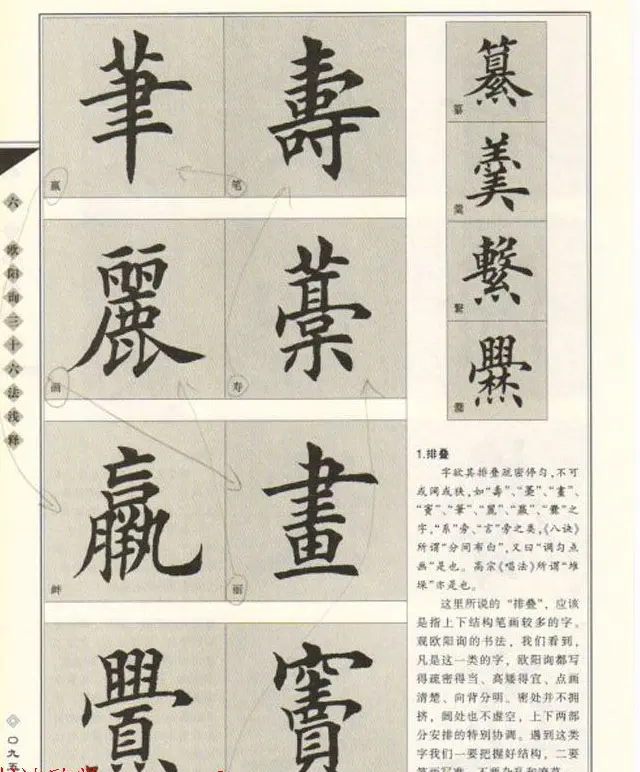 六 欧阳询三十六法浅释
筆 壽
赢 笔
麗 藁
画 寿
羸 畫
衅 丽
纂
纂
羹
羹
繫
爨
爨
1.排叠
字欲其排叠疏密停匀,不可
或阔或狭,如“壽”、“藁”、“畫”、
“竇”、“筆”、“麗”、“羸”、“爨”之
字,“系”旁、“言”旁之类,《八诀》
所谓“分间布白”,又曰“调匀点
画”是也。高宗《唱法》所谓“堆
垛”亦是也。
这里所说的“排叠”,应该
是指上下结构笔画较多的字。
观欧阳询的书法,我们看到,
凡是这一类的字,欧阳询都写
得疏密得当、高矮得宜、点画
清楚、向背分明。密处并不拥
挤,阔处也不虚空,上下两部
分安排的特别协调。遇到这类
字我们一要把握好结构,二要
〇九五